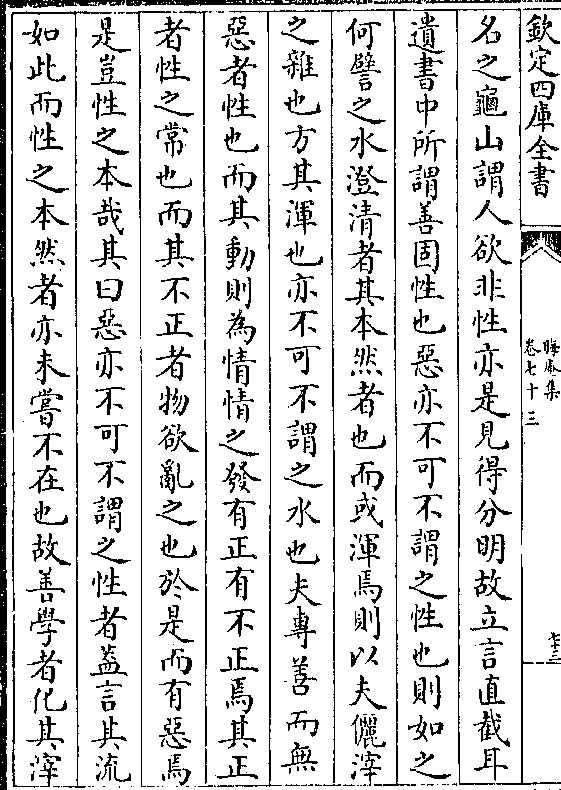 欽定四庫全書
晦庵集
卷七十三
七十三
名之龜山謂人欲非性亦是見得分明故立言直截耳
遺書中所謂善固性也惡亦不可不謂之性也則如之
何譬之水澄清者其本然者也而或渾焉則以夫儷滓
之雜也方其渾也亦不可不謂之水也夫專善而無
惡者性也而其動則為情情之發有正有不正焉其正
者性之常也而其不正者物欲亂之也於是而有惡焉
是豈性之本哉其曰惡亦不可不謂之性者葢言其流
如此而性之本然者亦未嘗不在也故善學者化其滓